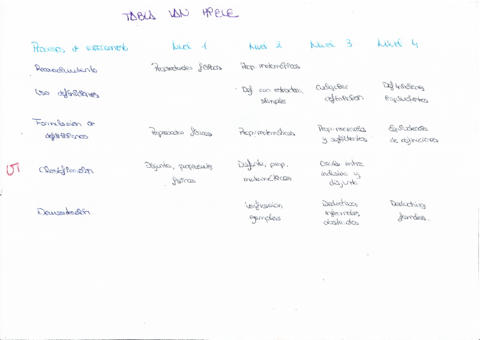 TABLA VAN HIELE
Procesos de razonamiento Nivel 1 Nivel 2 Nivel 3 Nivel 4
Reconocimiento Propiedades físicas Prop. matemáticas
Uso definiciones Def. con estructura simples Cualquier definición Definiciones equivalentes
Formulación de definiciones Propiedades físicas Prop. matemáticas Prop. necesarias y suficientes Equivalencia de definiciones
Clasificación Disjunta, propiedades físicas Disjunta, prop. matemáticas inclusiva y disjunta
Demostración Verificación ejemplos Deductivas informales abstractas Deductivas formales